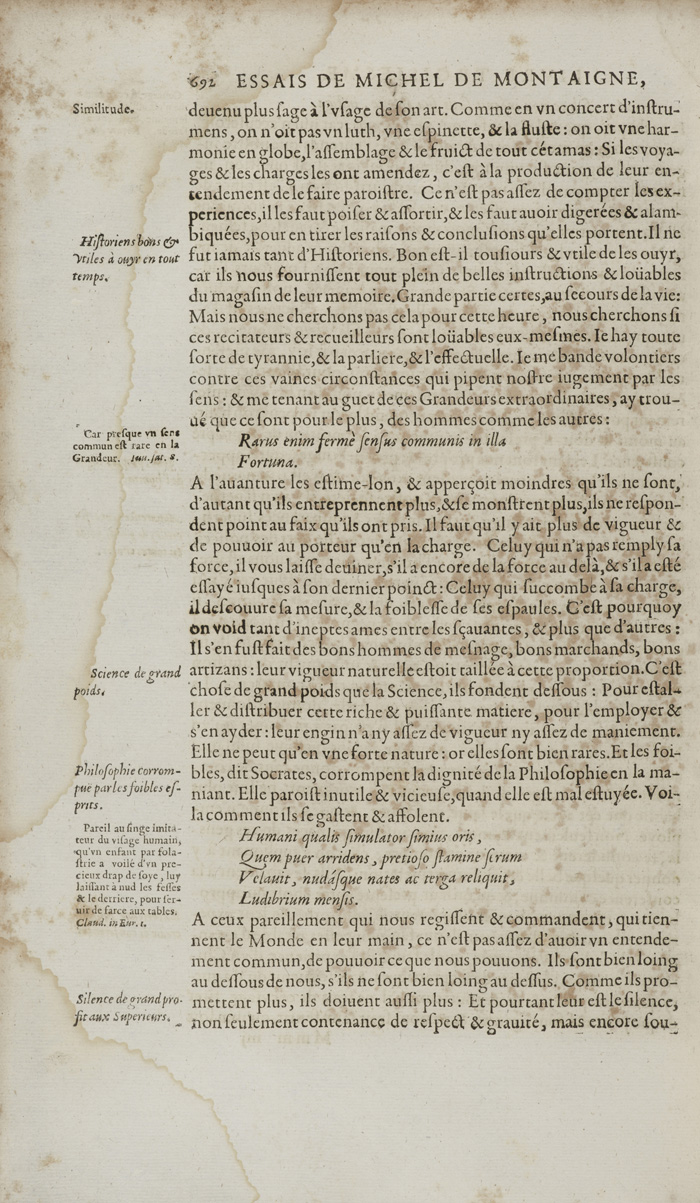 692 ESSAIS DE MICHEL DE MONTAIGNE,
Similitude.
deuenu plus ſage à l'vſage de ſon art. Comme en vn concert d'inſtru-
mens, on n'oit pas vn luth, vne eſpinette, & la fluſte : on oit vne har-
monie en globe, l'aſſemblage & le fruict de tout cét amas : Si les voya-
ges & les charges les ont amendez, c'eſt à la production de leur en-
tendement de le faire paroiſtre. Ce n'eſt pas aſſez de compter les ex-
periences, il les faut poiſer & aſſortir, & les faut auoir digerées & alam-
Hiſtoriens bons &
vtiles à ouyr en tout
temps.
biquées, pour en tirer les raiſons & concluſions qu'elles portent. Il ne
fut iamais tant d'Hiſtoriens. Bon eſt-il touſiours & vtile de les ouyr,
car ils nous fourniſſent tout plein de belles inſtructions & loüables
du magaſin de leur memoire. Grande partie certes, au ſecours de la vie:
Mais nous ne cherchons pas cela pour cette heure, nous cherchons ſi
ces recitateurs & recueilleurs ſont loüables eux-meſmes. Ie hay toute
ſorte de tyrannie, & la parliere, & l'effectuelle. Ie me bande volontiers
contre ces vaines circonſtances qui pipent noſtre iugement par les
ſens : & me tenant au guet de ces Grandeurs extraordinaires, ay trou-
ué que ce ſont pour le plus, des hommes comme les autres :
Car preſque vn ſens
commun eſt rare en la
Grandeur. Iuu. ſat. 8.
Rarus enim fermè ſenſus communis in illa
Fortuna.
A l'auanture les eſtime-lon, & apperçoit moindres qu'ils ne ſont,
d'autant qu'ils entreprennent plus, & ſe monſtrent plus, ils ne reſpon-
dent point au faix qu'ils ont pris. Il faut qu'il y ait plus de vigueur &
de pouuoir au porteur qu'en la charge. Celuy qui n'a pas remply ſa
force, il vous laiſſe deuiner, s'il a encore de la force au delà, & s'il a eſté
eſſayé iuſques à ſon dernier poinct : Celuy qui ſuccombe à ſa charge,
il deſcouure ſa meſure, & la foibleſſe de ſes eſpaules. C'eſt pourquoy
on void tant d'ineptes ames entre les ſçauantes, & plus que d'autres :
Il s'en fuſt fait des bons hommes de meſnage, bons marchands, bons
Science de grand
poids.
artizans : leur vigueur naturelle eſtoit taillée à cette proportion. C'eſt
choſe de grand poids que la Science, ils fondent deſſous : Pour eſtal-
ler & diſtribuer cette riche & puiſſante matiere, pour l'employer &
s'en ayder : leur engin n'a ny aſſez de vigueur ny aſſez de maniement.
Elle ne peut qu'en vne forte nature : or elles ſont bien rares. Et les foi-
Philoſophie corrom-
puë par les foibles eſ-
prits.
bles, dit Socrates, corrompent la dignité de la Philoſophie en la ma-
niant. Elle paroiſt inutile & vicieuſe, quand elle eſt mal eſtuyée. Voi-
la comment ils ſe gaſtent & affolent.
Pareil au ſinge imita-
teur du viſage humain,
qu'vn enfant par fola-
ſtrie a voilé d'vn pre-
cieux drap de ſoye, luy
laiſſant à nud les feſſes
& le derriere, pour ſer-
uir de farce aux tables.
Claud. in Eur. 1.
Humani qualis ſimulator ſimius oris,
Quem puer arridens, pretioſo ſtamine ſerum
Velauit, nudáſque nates ac terga reliquit,
Ludibrium menſis.
A ceux pareillement qui nous regiſſent & commandent, qui tien-
nent le Monde en leur main, ce n'eſt pas aſſez d'auoir vn entende-
ment commun, de pouuoir ce que nous pouuons. Ils ſont bien loing
au deſſous de nous, s'ils ne ſont bien loing au deſſus. Comme ils pro-
Silence de grand pro-
fit aux Superieurs.
mettent plus, ils doiuent auſſi plus : Et pourtant leur eſt le ſilence,
non ſeulement contenance de reſpect & grauité, mais encore ſou-